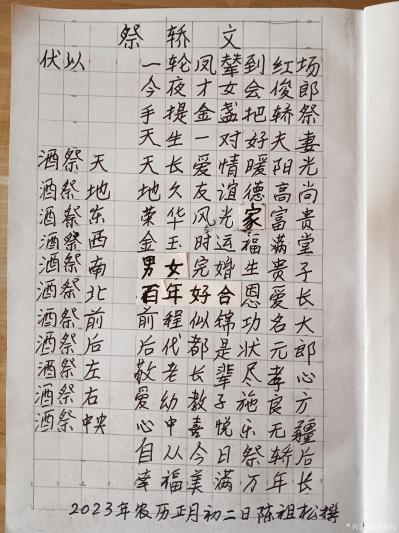 祭轿文
伏以 一轮凤辇到红场
今夜才女会俊郎
手提金盏把轿祭
天生一对好夫妻
酒祭天 天长爱情暖阳光
酒祭地 地久友谊德高尚
酒祭东 荣华风光家富贵
酒祭西 金玉时运福满堂
酒祭南 男女完婚生贵子
酒祭北 百年好合恩爱长
酒祭前 前程似锦功名大
酒祭后 后代都是状元郎
酒祭左 敬老长辈尽孝心
酒祭右 爱幼教子施良方
酒祭中央 心中喜悦乐无疆
自从今日祭轿后
幸福美满万年长
2023年农历正月初二日陈祖松撰